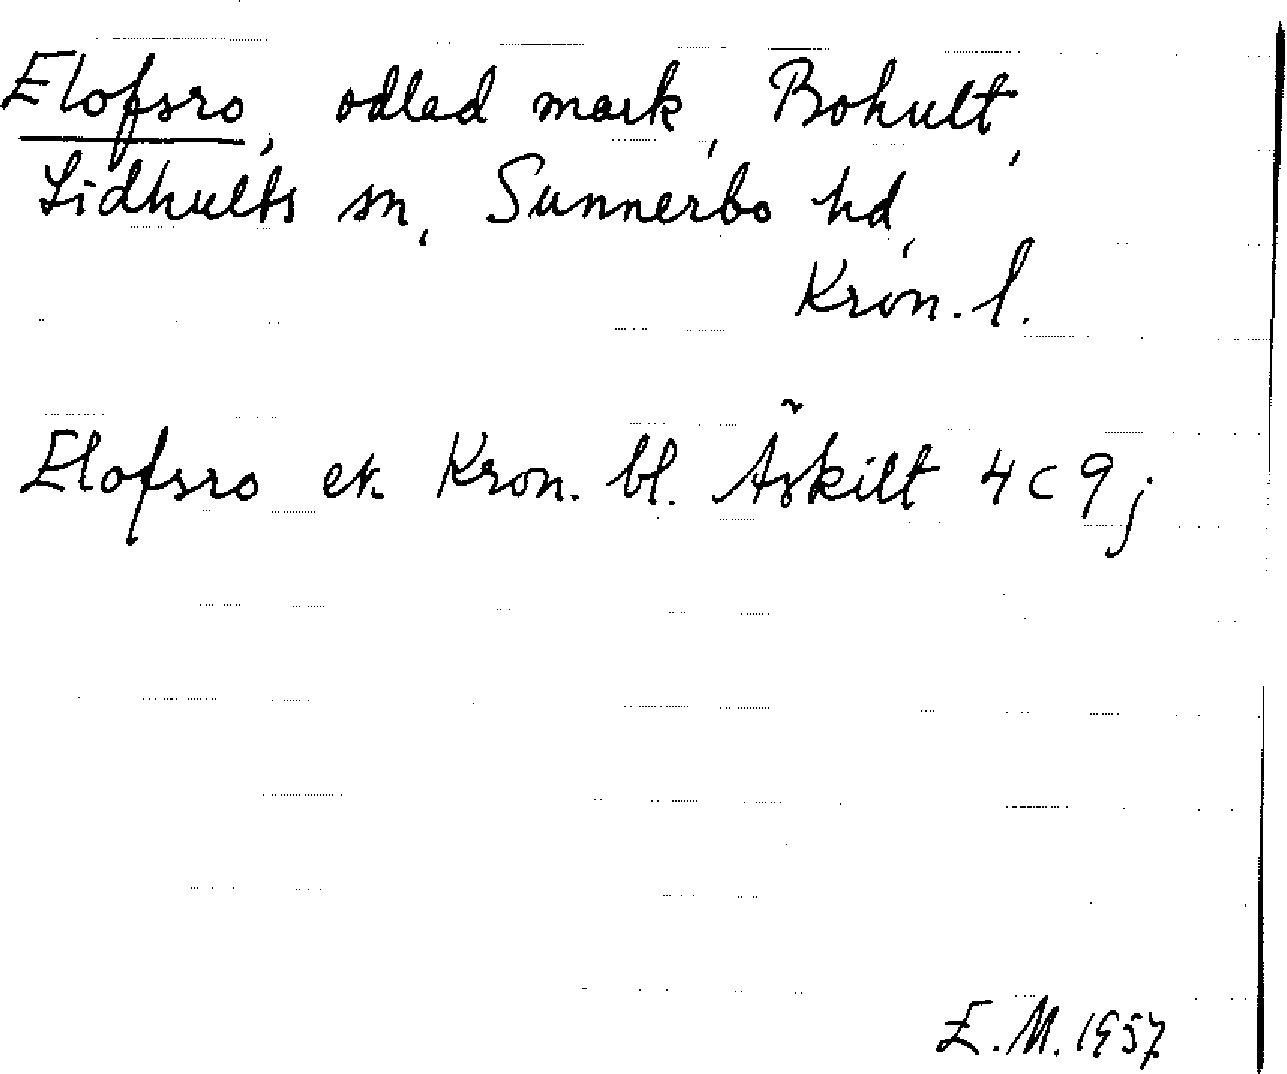 Elofsro, odlad mark, Bohult,
Lidhults sn, Sunnerbo hd,
Kron. l.
Elofsro ek. Kron. bl. Äskilt 4c9j
E.M. 1957